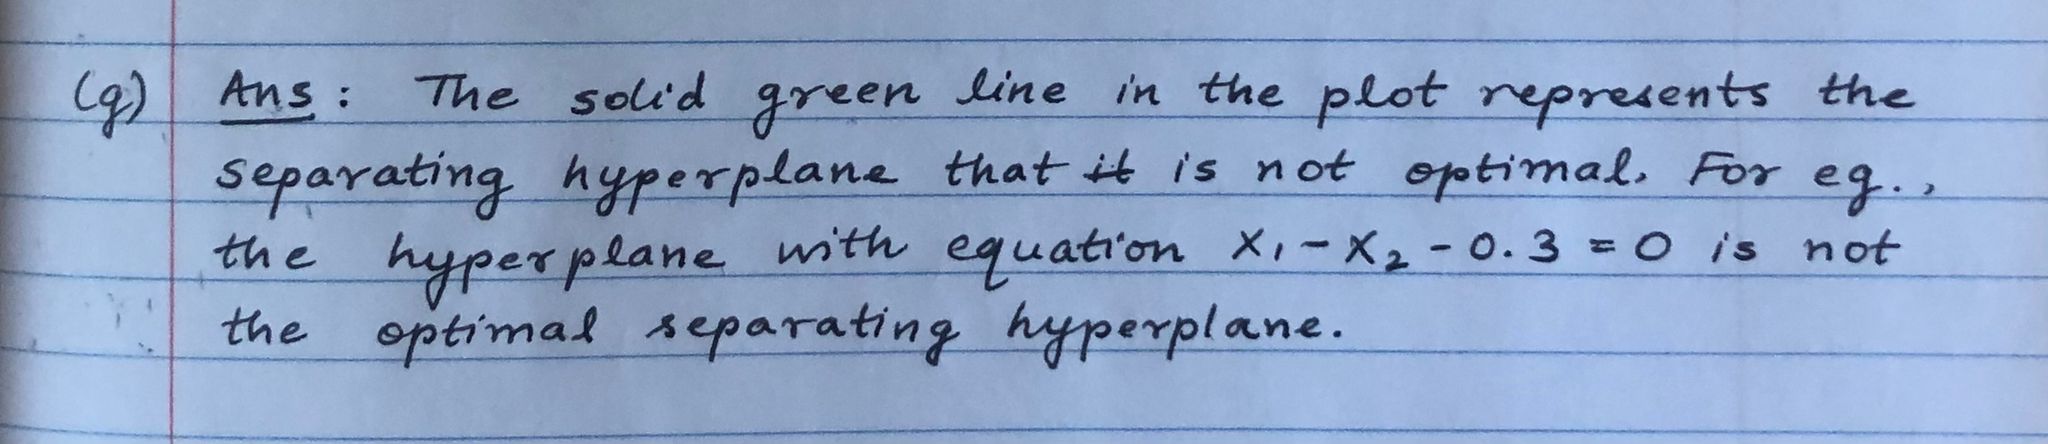 (g) Ans: The solid green line in the plot represents the
separating hyperplane that it is not optimal. For eg.,
the hyperplane with equation X₁ - X₂ - 0.3 = 0 is not
the optimal separating hyperplane.